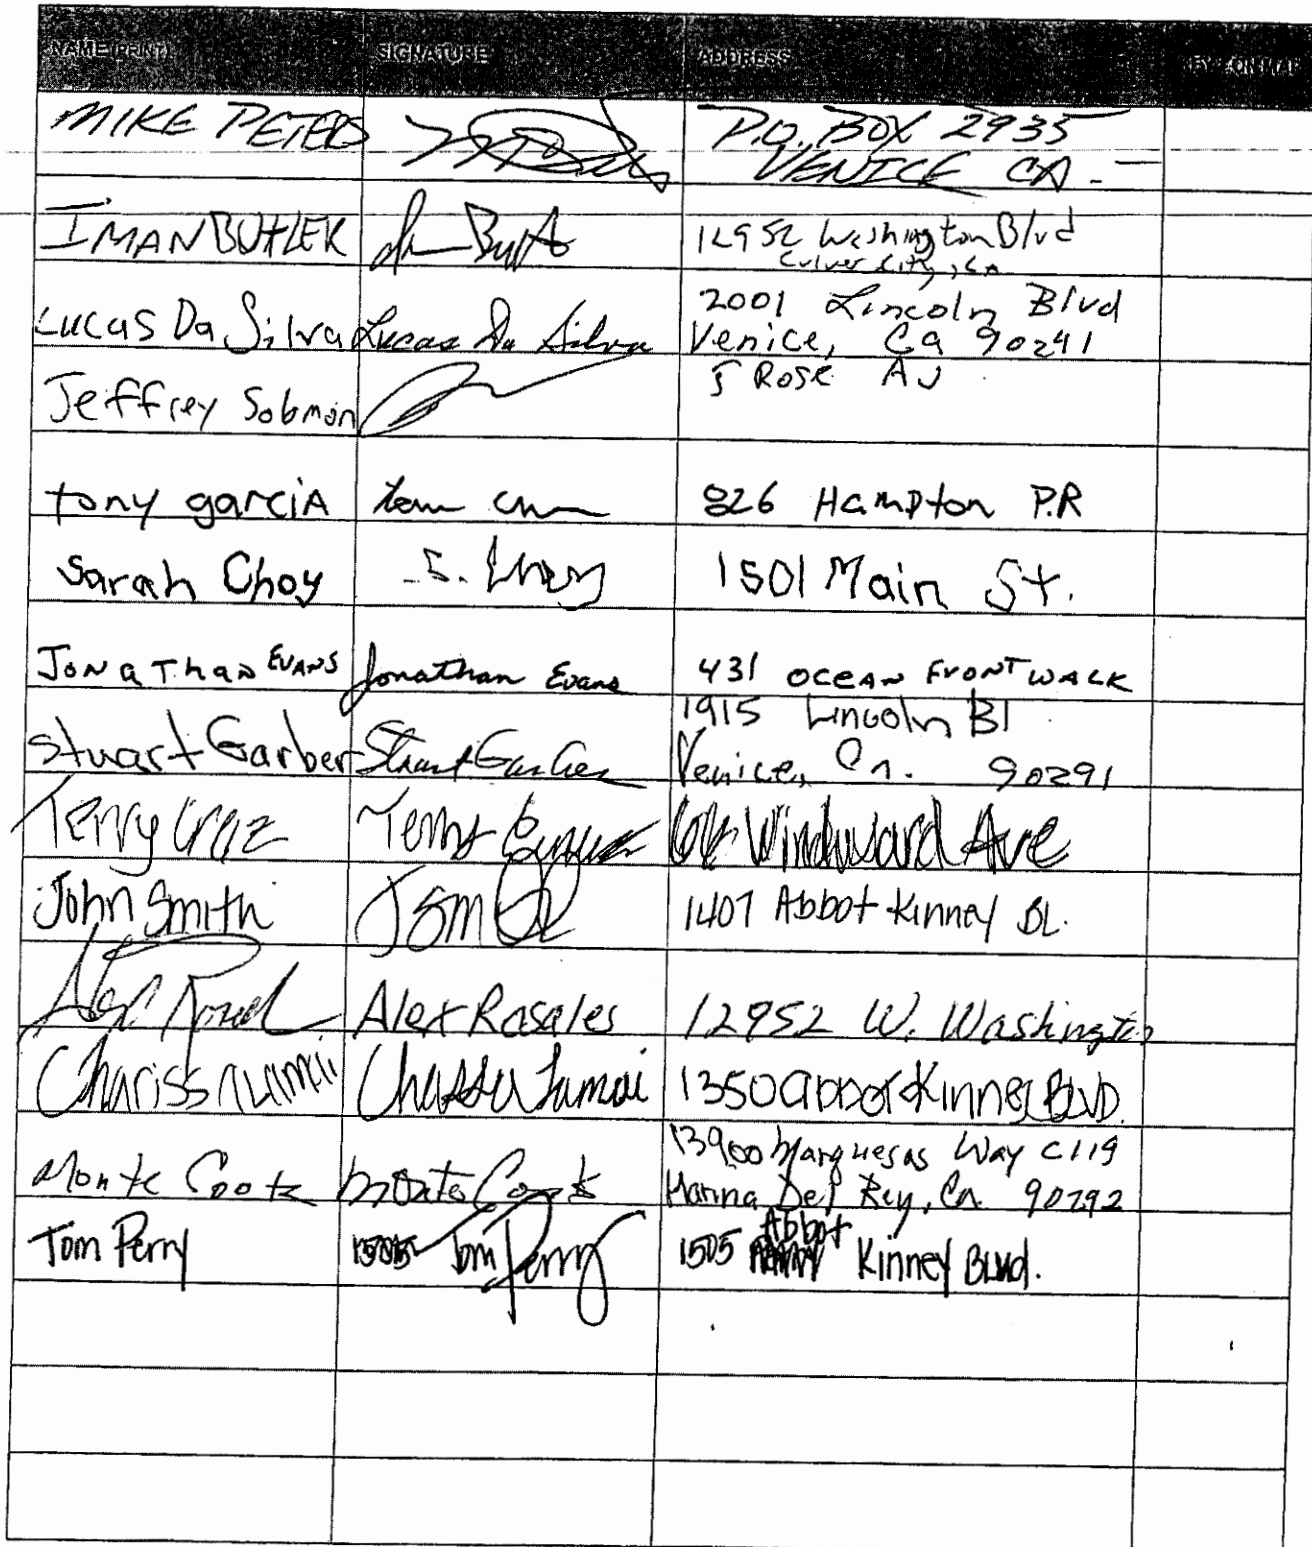 NAME (PRINT) SIGNATURE ADDRESS KEY # ON MAP
MIKE PETERS P.O. BOX 2935
VENICE CA.
IMAN BUTLER 12952 Washington Blvd
Culver City, CA
Lucas Da Silva Lucas Da Silva 2001 Lincoln Blvd
Venice, Ca 90241
Jeffrey 5 Rose Av
tony garciA 826 Hampton P.R
Sarah Choy S. Choy 1501 Main St.
Jonathan Evans Jonathan Evans 431 Ocean Front Walk
Stuart Garber Stuart Garber 1915 Lincoln Bl
Venice, Ca. 90291
Terry Cruz Terry Windward Ave
John Smith 1407 Abbot Kinney BL.
Alex Rosales 12952 W. Washington
Charissa Lamai 1350 abbot Kinney Blvd.
Monte Cook Monte Cook 13900 Marquesas Way C119
Marina Del Rey, Ca 90292
Tom Perry 1505 Tom Perry 1505 Abbot Kinney Blvd.